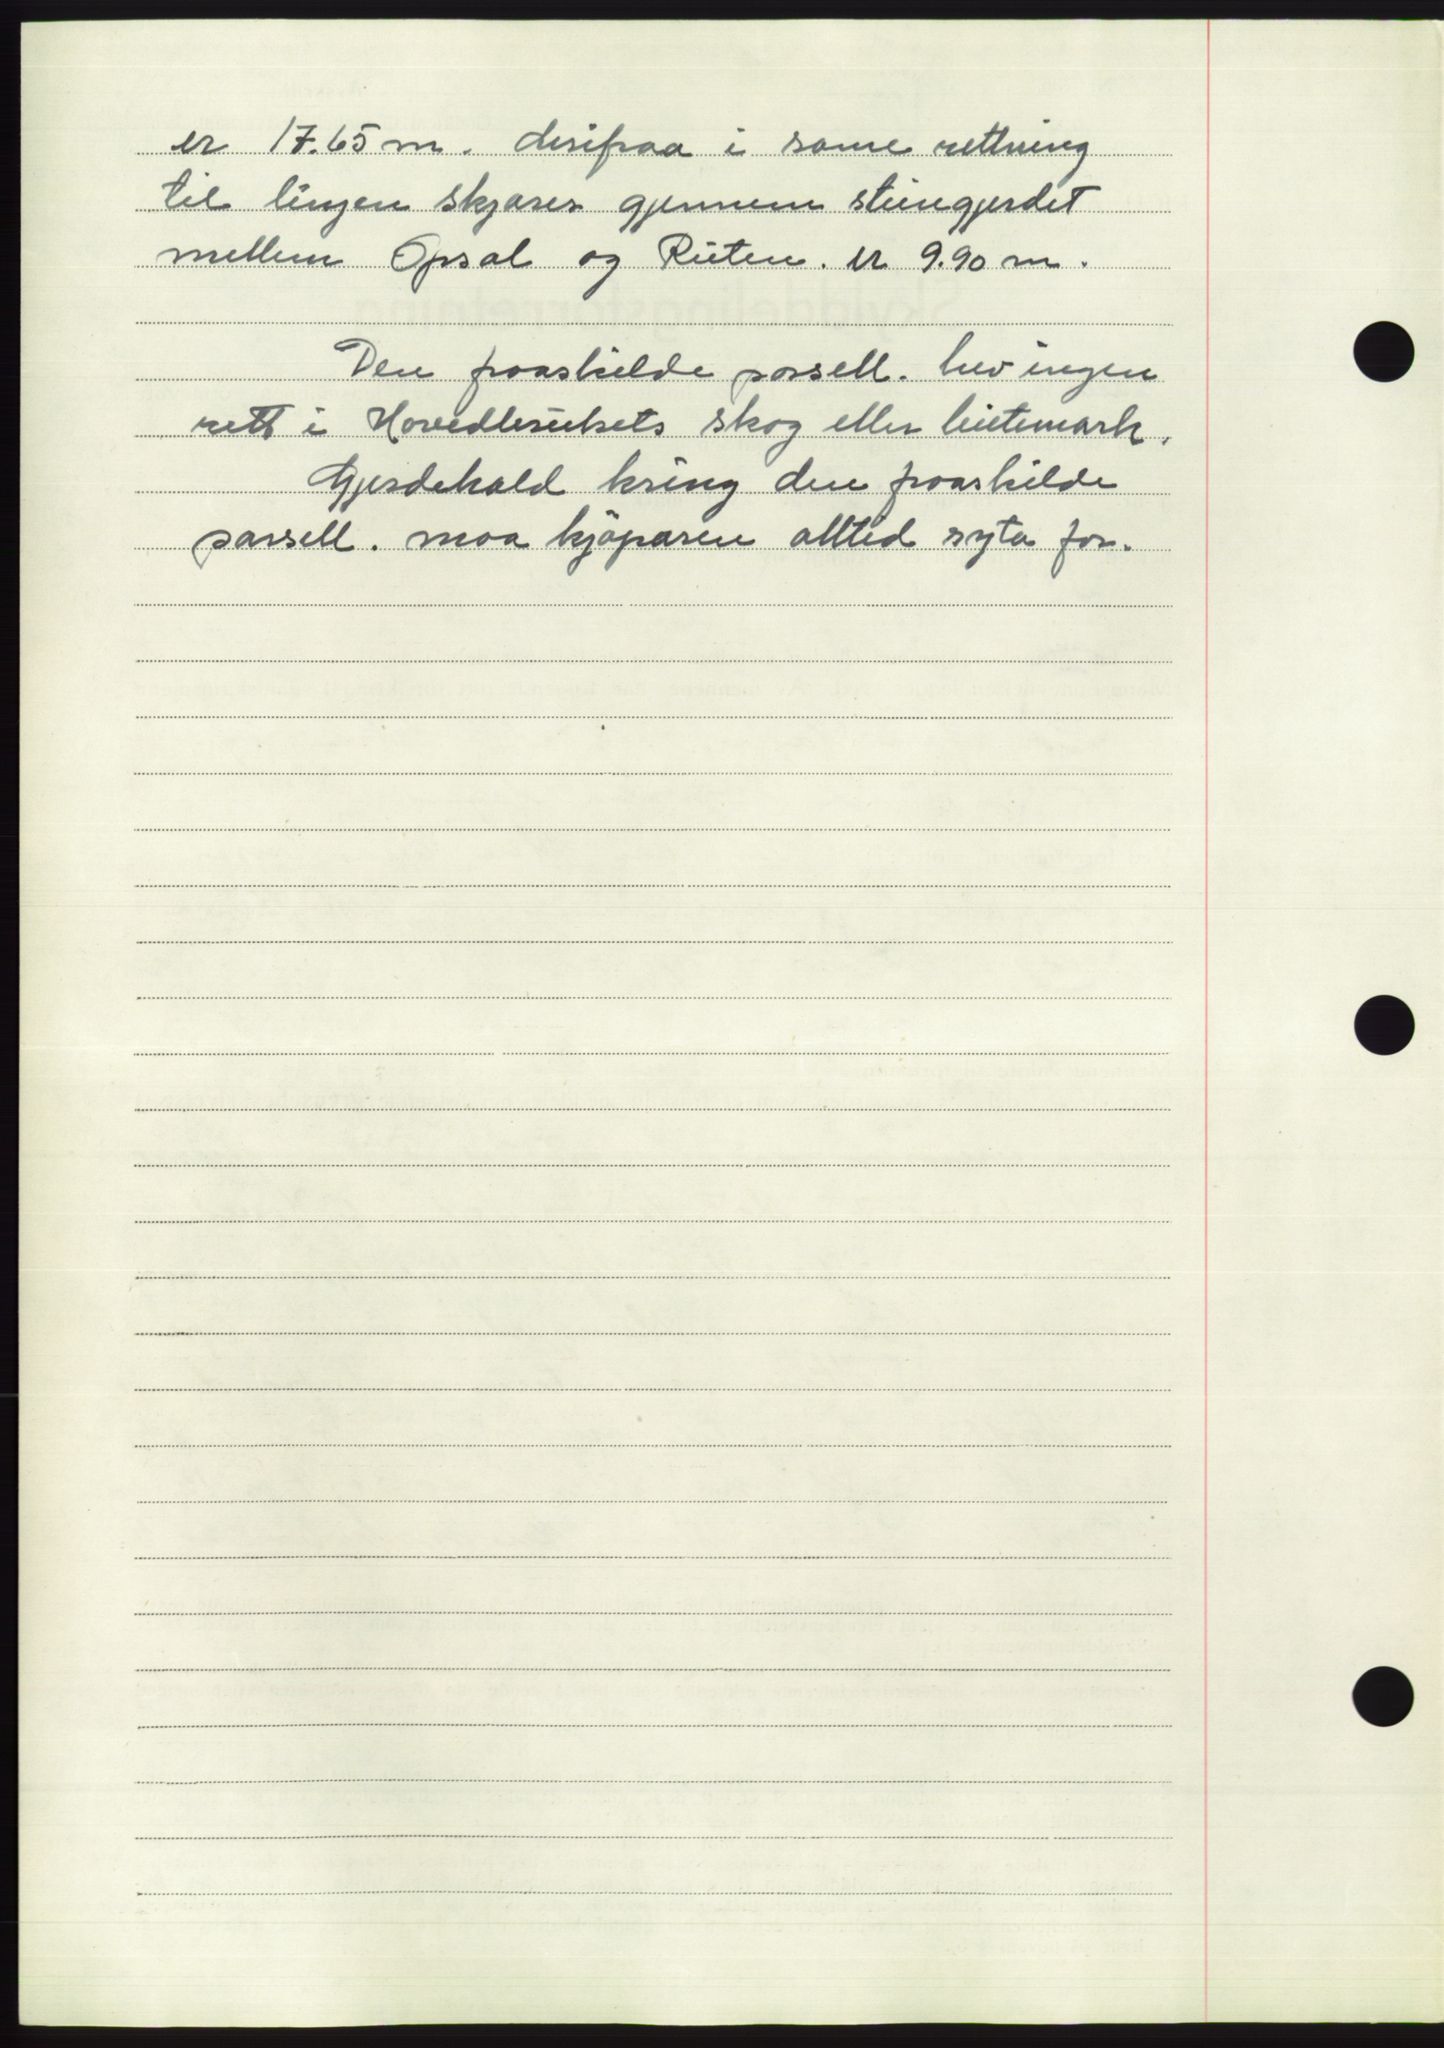 er 17.65 m. derifraa i same rettning
til linjen skjærer gjennem steingjerdet
mellem Opsal og Ruten. er 9.90 m.
Den fraaskilde parsell. hev ingen
rett i Hovedbrukets skog eller beitemark.
Gjerdehald kring den fraaskilde
parsell. maa kjöparen alltid syta for.